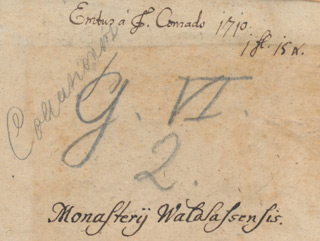 Emtus á Fr. Conrado 1710.
1 fl. 15 x.
G. VI.
2.
Monasterij Waldsassensis.